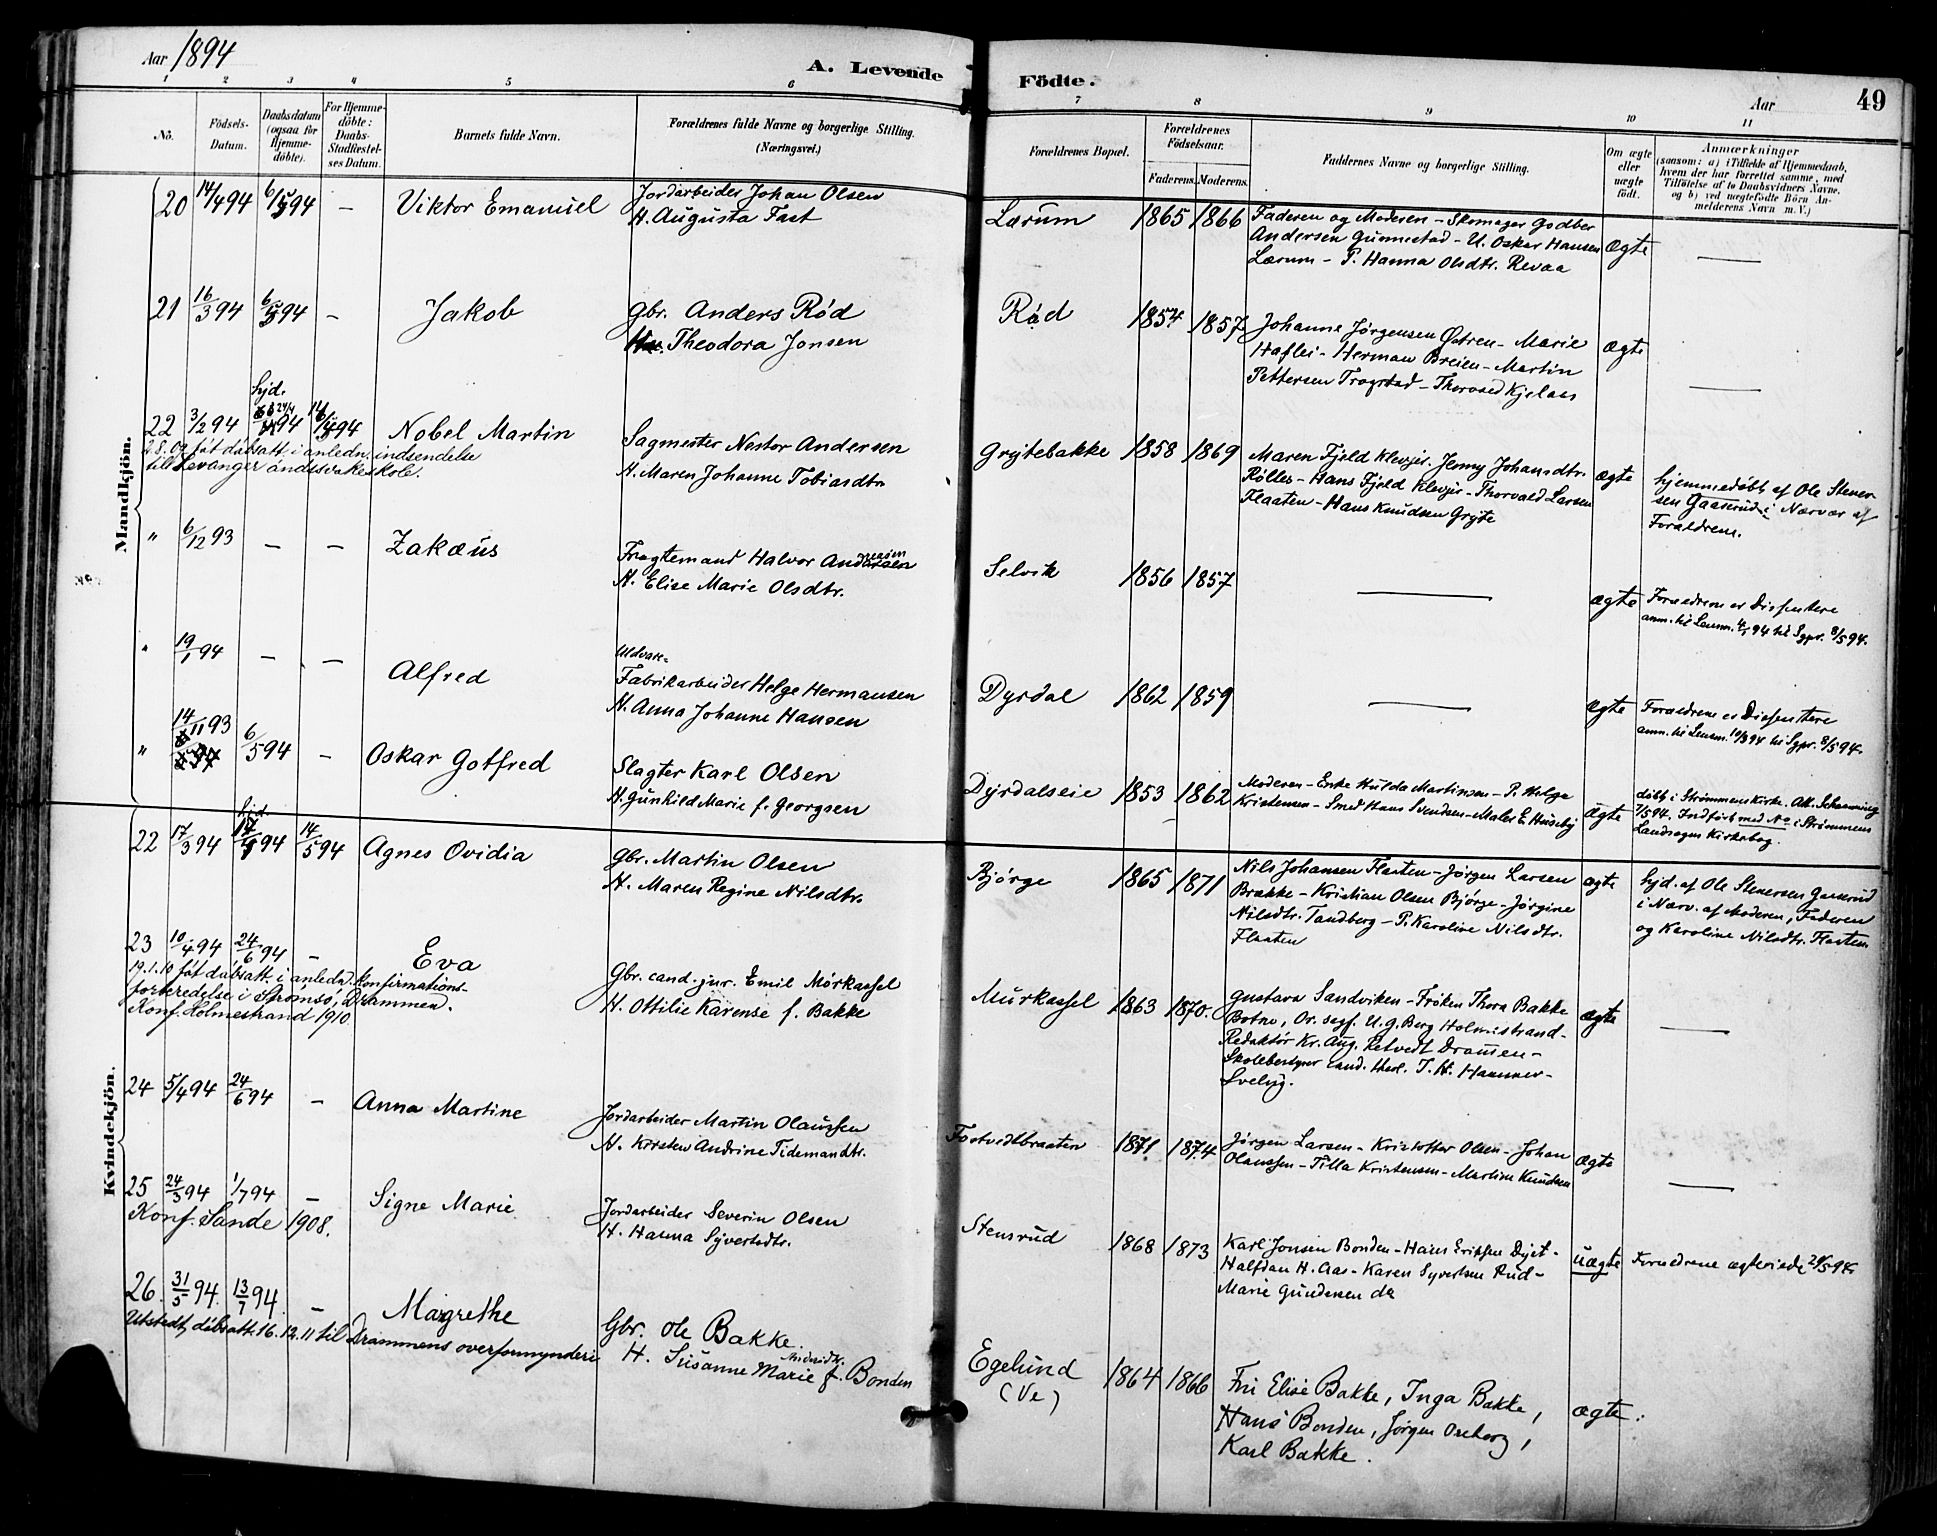 Aar 1894
A. Levende Födte.
Aar
49
1 2 3 4 5 6 7 8 9 10 11
No.
Födsels-Datum.
Daabsdatum (ogsaa for Hjemmedöbte).
For Hjemmedöbte: Daabs-Stadfæstelses Datum.
Barnets fulde Navn.
Forældrenes fulde Navne og borgerlige Stilling.
(Næringsvei.)
Forældrenes Bopæl.
Forældrenes Födselsaar.
Faderens. Moderens.
Faddernes Navne og borgerlige Stilling.
Om ægte eller uægte födt.
Anmærkninger
(saasom: a) i Tilfælde af Hjemmedaab, hvem der har forrettet samme, med Tilföielse af to Daabsvidners Navne, og b) ved uægtefödte Börn Anmelderens Navn m. V.)
Mandkjön.
20 14/4 94 6/5 94 — Viktor Emanuel
Jordarbeider Johan Olsen
H. Augusta Fast
Lærum 1865 1866
Faderen og Moderen – Skomager Godber
Andersen Gunnestad – U. Oskar Hansen
Lærum – P. Hanna Olsdtr. Revaa
ægte —
21 16/3 94 6/5 94 — Jakob
Gbr. Anders Rød
Theodora Jonsen
Rød 1854 1857
Johanne Jørgensen Østren – Marie
Haflei – Herman Breien – Martin
Pettersen Trogstad – Thorvald Kjelaas
ægte —
22 3/2 94 hjd. 94 94 Nobel Martin
28.8.07 fåt dåbsatt. i anledn. indsendelse
til Levanger åndssvakeskole.
Sagmester Nestor Andersen
H. Maren Johanne Tobiasdtr
Grytebakke 1858 1869
Maren Fjeld Klevjer. Jenny Johansdtr.
Rølles – Hans Fjeld Klevjer – Thorvald Larsen
Flaaten – Hans Knudsen Gryte
ægte
hjemmedøbt af Ole Stener-
sen Gaaserud i Nærvær af
Forældrene.
" 6/12 93 — — Zakæus
Fragtemand Halvor
H. Elise Marie Olsdtr.
Selvik 1856 1857 —
ægte
Forældrene er Dissentere
anm. til Lensm. 4/1 94 til Sgpr. 8/5 94.
" 19/1 94 — — Alfred
Uldvare-
Fabrikarbeider Helge Hermansen
H. Anna Johanne Hansen
Dyrdal 1862 1859 —
ægte
Forældrene er Dissentere
anm. til Lensm. 10/3 94 til Sgpr. 8/5 94.
" 14/11 93 6/5 94 — Oskar Gotfred
Slagter Karl Olsen
H. Gunhild Marie f. Georgsen
Dyrdalseie 1853 1862
Moderen – Enke Hulda Martinsen – P. Helga
Kristensen – Smed Hans Svendsen – Maler E. Huseby
ægte
døbt i Strømmens Kirke. Att. Schanning
7/5 94. Indført med No i Strømmens
Landsogns Kirkebog.
Kvindekjön.
22 17/3 94 hjd. 94 14/5 94 Agnes Ovidia
Gbr. Martin Olsen
H. Maren Regine Nilsdtr.
Bjørge 1865 1871
Nils Johansen Flaaten – Jørgen Larsen
Brække – Kristian Olsen Bjørge – Jørgine
Nilsdtr. Tandberg – P. Karoline Nilsdtr.
Flaaten
ægte
hjd. af Ole Stenersen Gaaserud
i Nærv. af Moderen, Faderen
og Karoline Nilsdtr. Flaaten
23 10/4 94 24/6 94 — Eva
19.1.10 fåt dåbsatt. i anledn. konfirmations-
forberedelse i Strømsø, Drammen.
Konf. Holmestrand 1910.
Gbr. cand. jur. Emil Mörkassel
H. Ottilie Karense f. Bakke
Murkassel 1863 1870.
Gustava Sandviken – Frøken Thora Bakke
Botne, Or. sagf. U. G. Berg Holmestrand –
Redaktör Kr. Aug. Retvedt Drammen –
Skolebestyrer cand. theol. J. H. Hammer –
Svelvig.
ægte —
24 5/4 94 24/6 94 — Anna Martine
Jordarbeider Martin Olaussen
H. Kirsten Andrine Tidemandtr.
Fostvedtbraaten 1871 1874
Jørgen Larsen – Kristoffer Olsen – Johan
Olaussen – Tilla Kristensen – Martine Knudsen
ægte —
25 24/3 94 1/7 94 — Signe Marie
Konf. Sande 1908.
Jordarbeider Severin Olsen
H. Hanna Syverstdtr.
Stensrud 1868 1873
Karl Jonsen Bonden – Hans Eriksen Dyst –
Halfdan H. Aas – Karen Syvertsen Rud –
Marie Gundersen do
uægte
Forældrene ægteviede 24/5 94
26. 31/5 94. 13/7 94. — Magrethe
Utstedt dåbsatt. 16.12.11 til Drammens overformynderi
Gbr. Ole Bakke.
H. Susanne Marie f. Bonden
Egelund
(Ve)
1864 1866
Fru Elise Bakke, Inga Bakke,
Hans Bonden, Jørgen Oseberg,
Karl Bakke.
ægte.